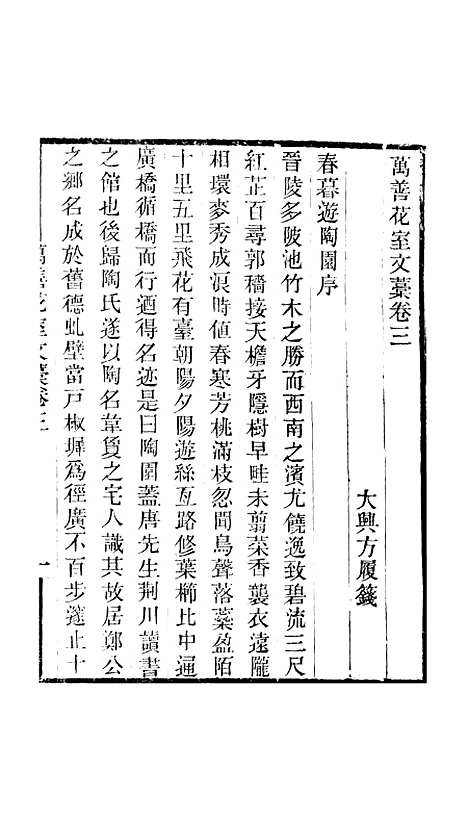 萬善花室文藁卷三
大興方履籛
春暮遊陶園序
晉陵多陂池竹木之勝而西南之濱尤饒逸致碧流三尺
紅芷百尋郭穡接天檐牙隱樹早畦未翦菜香襲衣遠隴
相環麥秀成浪時值春寒芳桃滿枝忽聞鳥聲落蘂盈陌
十里五里飛花有臺朝陽夕陽遊絲亙路修葉櫛比中通
廣橋循橋而行迺得名迹是曰陶園蓋唐先生荆川讀書
之館也後歸陶氏遂以陶名葦篔之宅人識其故居鄭公
之鄉名成於舊德虬壁當戸椒墀爲徑廣不百步邃止十
萬善花室文藁卷三
一